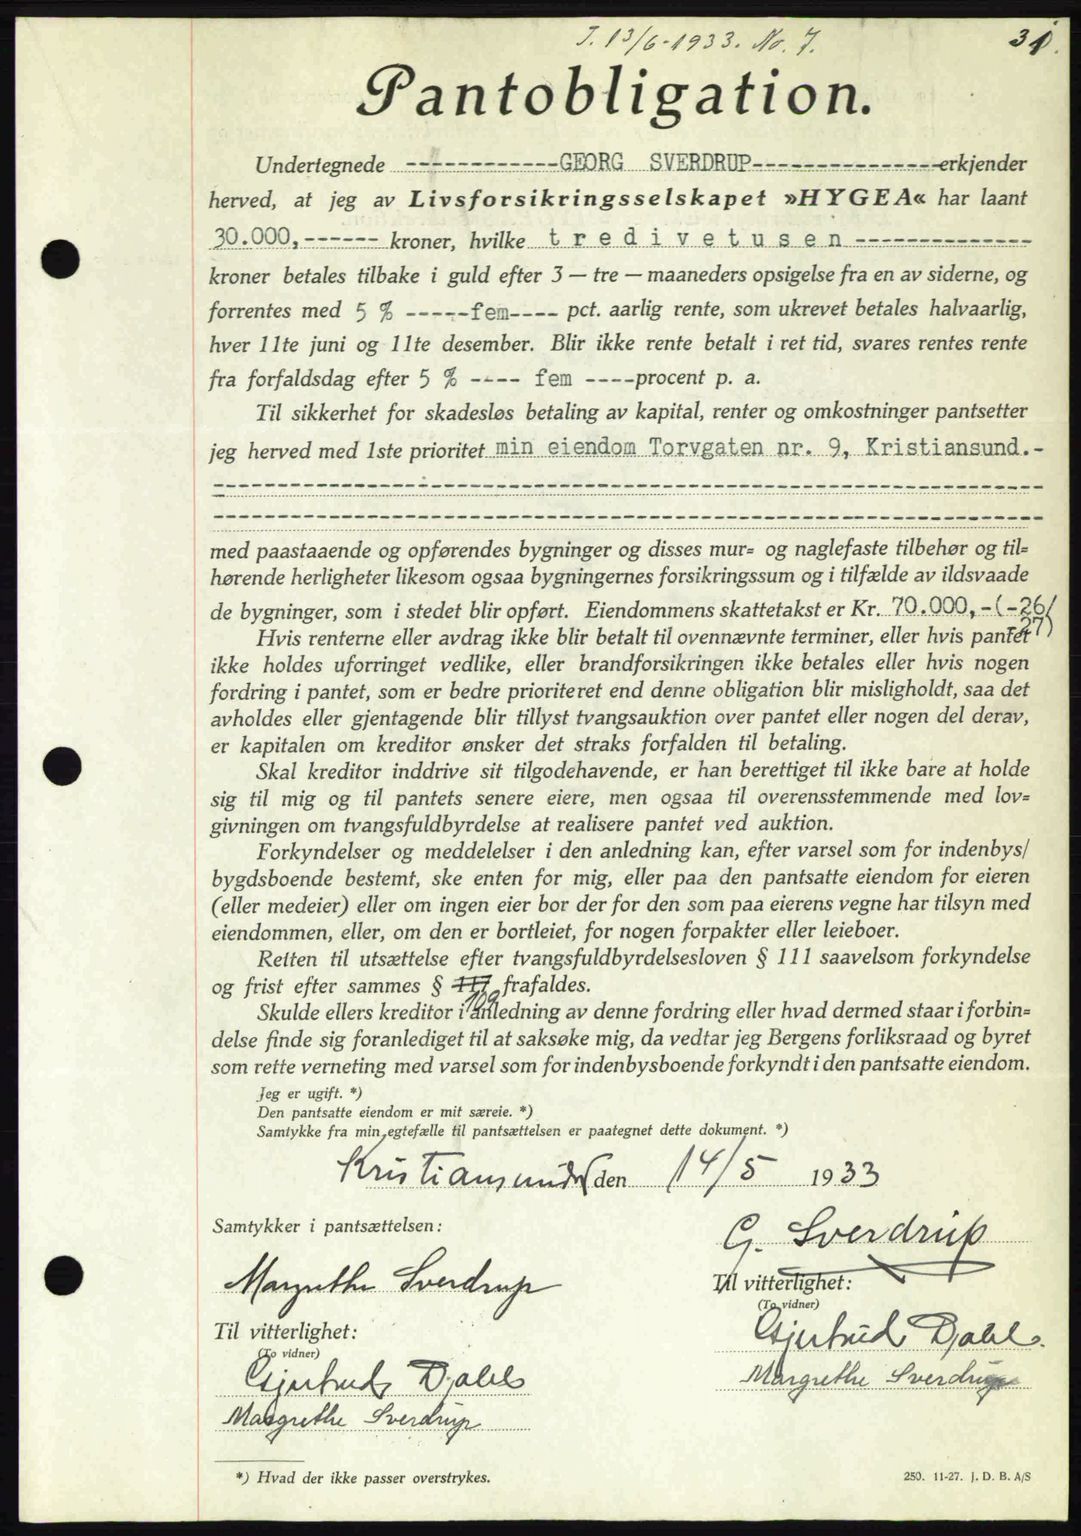 T. 13/6-1933. No. 7.
31.
Pantobligation.
Undertegnede ------------GEORG SVERDRUP---------------erkjender
herved, at jeg av Livsforsikringsselskapet »HYGEA« har laant
30.000,------ kroner, hvilke tredivetusen --------------
kroner betales tilbake i guld efter 3 — tre — maaneders opsigelse fra en av siderne, og
forrentes med 5 % -----fem---- pct. aarlig rente, som ukrevet betales halvaarlig,
hver 11te juni og 11te desember. Blir ikke rente betalt i ret tid, svares rentes rente
fra forfaldsdag efter 5 % ---- fem ----procent p. a.
Til sikkerhet for skadesløs betaling av kapital, renter og omkostninger pantsetter
jeg herved med 1ste prioritet min eiendom Torvgaten nr. 9, Kristiansund.-
med paastaaende og opførendes bygninger og disses mur= og naglefaste tilbehør og til=
hørende herligheter likesom ogsaa bygningernes forsikringssum og i tilfælde av ildsvaade
de bygninger, som i stedet blir opført. Eiendommens skattetakst er Kr. 70.000,-(-26/
-27)
Hvis renterne eller avdrag ikke blir betalt til ovennævnte terminer, eller hvis pantet
ikke holdes uforringet vedlike, eller brandforsikringen ikke betales eller hvis nogen
fordring i pantet, som er bedre prioriteret end denne obligation blir misligholdt, saa det
avholdes eller gjentagende blir tillyst tvangsauktion over pantet eller nogen del derav,
er kapitalen om kreditor ønsker det straks forfalden til betaling.
Skal kreditor inddrive sit tilgodehavende, er han berettiget til ikke bare at holde
sig til mig og til pantets senere eiere, men ogsaa til overensstemmende med lov=
givningen om tvangsfuldbyrdelse at realisere pantet ved auktion.
Forkyndelser og meddelelser i den anledning kan, efter varsel som for indenbys/
bygdsboende bestemt, ske enten for mig, eller paa den pantsatte eiendom for eieren
(eller medeier) eller om ingen eier bor der for den som paa eierens vegne har tilsyn med
eiendommen, eller, om den er bortleiet, for nogen forpakter eller leieboer.
Retten til utsættelse efter tvangsfuldbyrdelsesloven § 111 saavelsom forkyndelse
og frist efter sammes § 117 frafaldes.
109
Skulde ellers kreditor i anledning av denne fordring eller hvad dermed staar i forbin=
delse finde sig foranlediget til at saksøke mig, da vedtar jeg Bergens forliksraad og byret
som rette verneting med varsel som for indenbysboende forkyndt i den pantsatte eiendom.
Jeg er ugift. *)
Den pantsatte eiendom er mit særeie. *)
Samtykke fra min egtefælle til pantsættelsen er paategnet dette dokument. *)
Kristiansund den 14/5 1933
Samtykker i pantsættelsen:
G. Sverdrup
Margrethe Sverdrup
Til vitterlighet:
(To vidner)
Til vitterlighet:
(To vidner)
Gjertrud Djahl.
Gjertrud Djahl
Margrethe Sverdrup
Margrethe Sverdrup
*) Hvad der ikke passer overstrykes.
250. 11-27. J. D. B. A/S